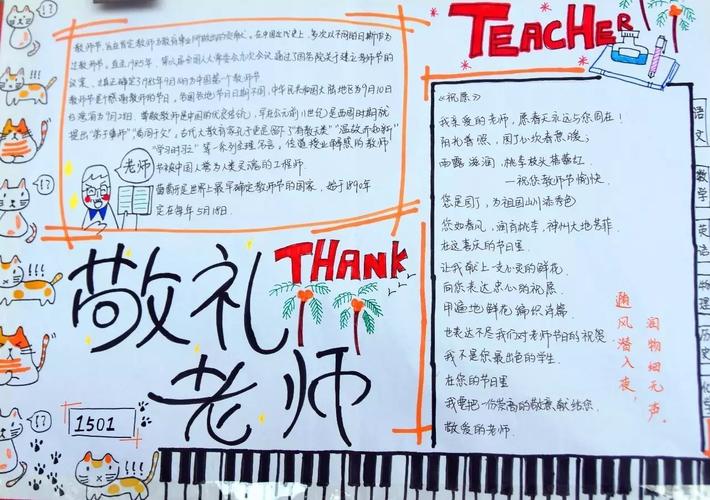 教师节，旨在肯定教师为教育事业所做出的贡献。在中国近代史上，多次以不同的日期作为
过教师节。直至1985年，第六届全国人大常委会九次会议通过了国务院关于建立教师节的
议案，才真正确定了1985年9月10日为中国第一个教师节
教师节是感谢教师的节日，各国各地节日日期不同，中华民 和大陆地区为9月10日
台湾省为9月28日，尊敬教师是中国的优良传统，早在公元前11世纪的西周时期就
提出"弟子事师""敬同于父"，古代大教育家孔子更是留下了"有教无类""温故而知新"
"学而时习之"等一系列至理名言，传道授业解惑的教师
节被中国人誉为人类灵魂的工程师
是世界上最早确定教师节的国家，始于1890年
定在每年5月18日
老师
TEACHER
THANK
敬礼
老师
1501
《祝愿》
我亲爱的老师，愿春天永远与您同在！
阳光普照，园丁心坎春意暖；
雨露滋润，桃李枝头蓓蕾红
——祝您教师节愉快
您是园丁，为祖国山川添秀色
您如春风，润育桃李，神州大地皆菲
在这喜庆的节日里
让我献上一支心灵的鲜花
向您表达衷心的祝愿
用遍地鲜花编织诗篇
也表达不尽我们对老师节日的祝贺
我不是您最出色的学生
在您的节日里
我要把一份崇高的敬意献给您
敬爱的老师
随风潜入夜，
润物细无声。
语文
数学
英语
物理
历史
化学